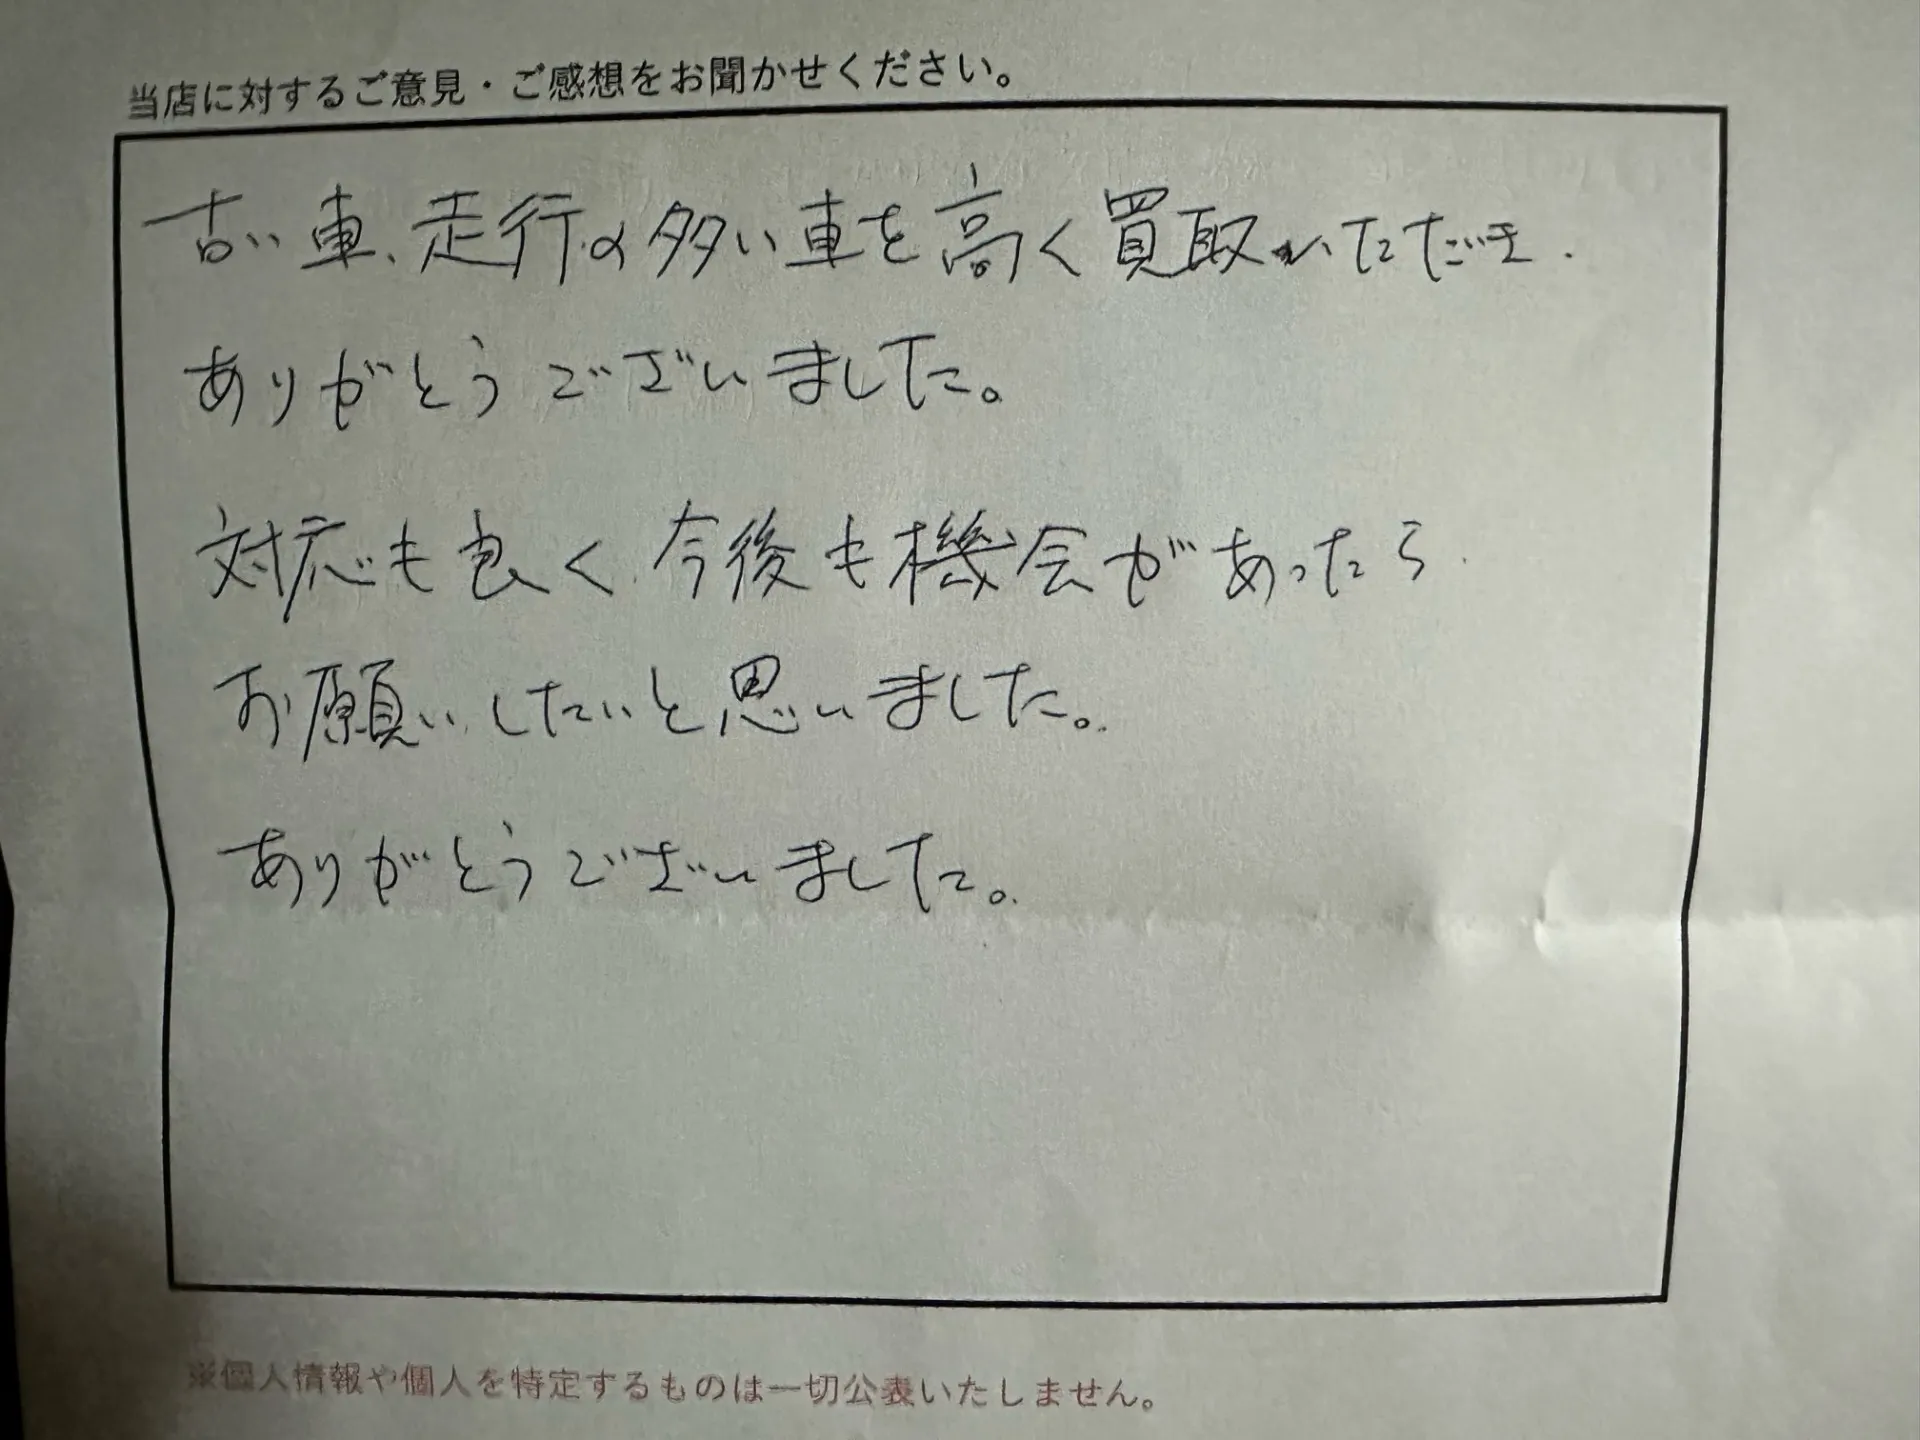 当店に対するご意見・ご感想をお聞かせください。
古い車、走行の多い車を高く買取いただき、
ありがとうございました。
対応も良く、今後も機会があったら、
お願いしたいと思いました。
ありがとうございました。
※個人情報や個人を特定するものは一切公表いたしません。